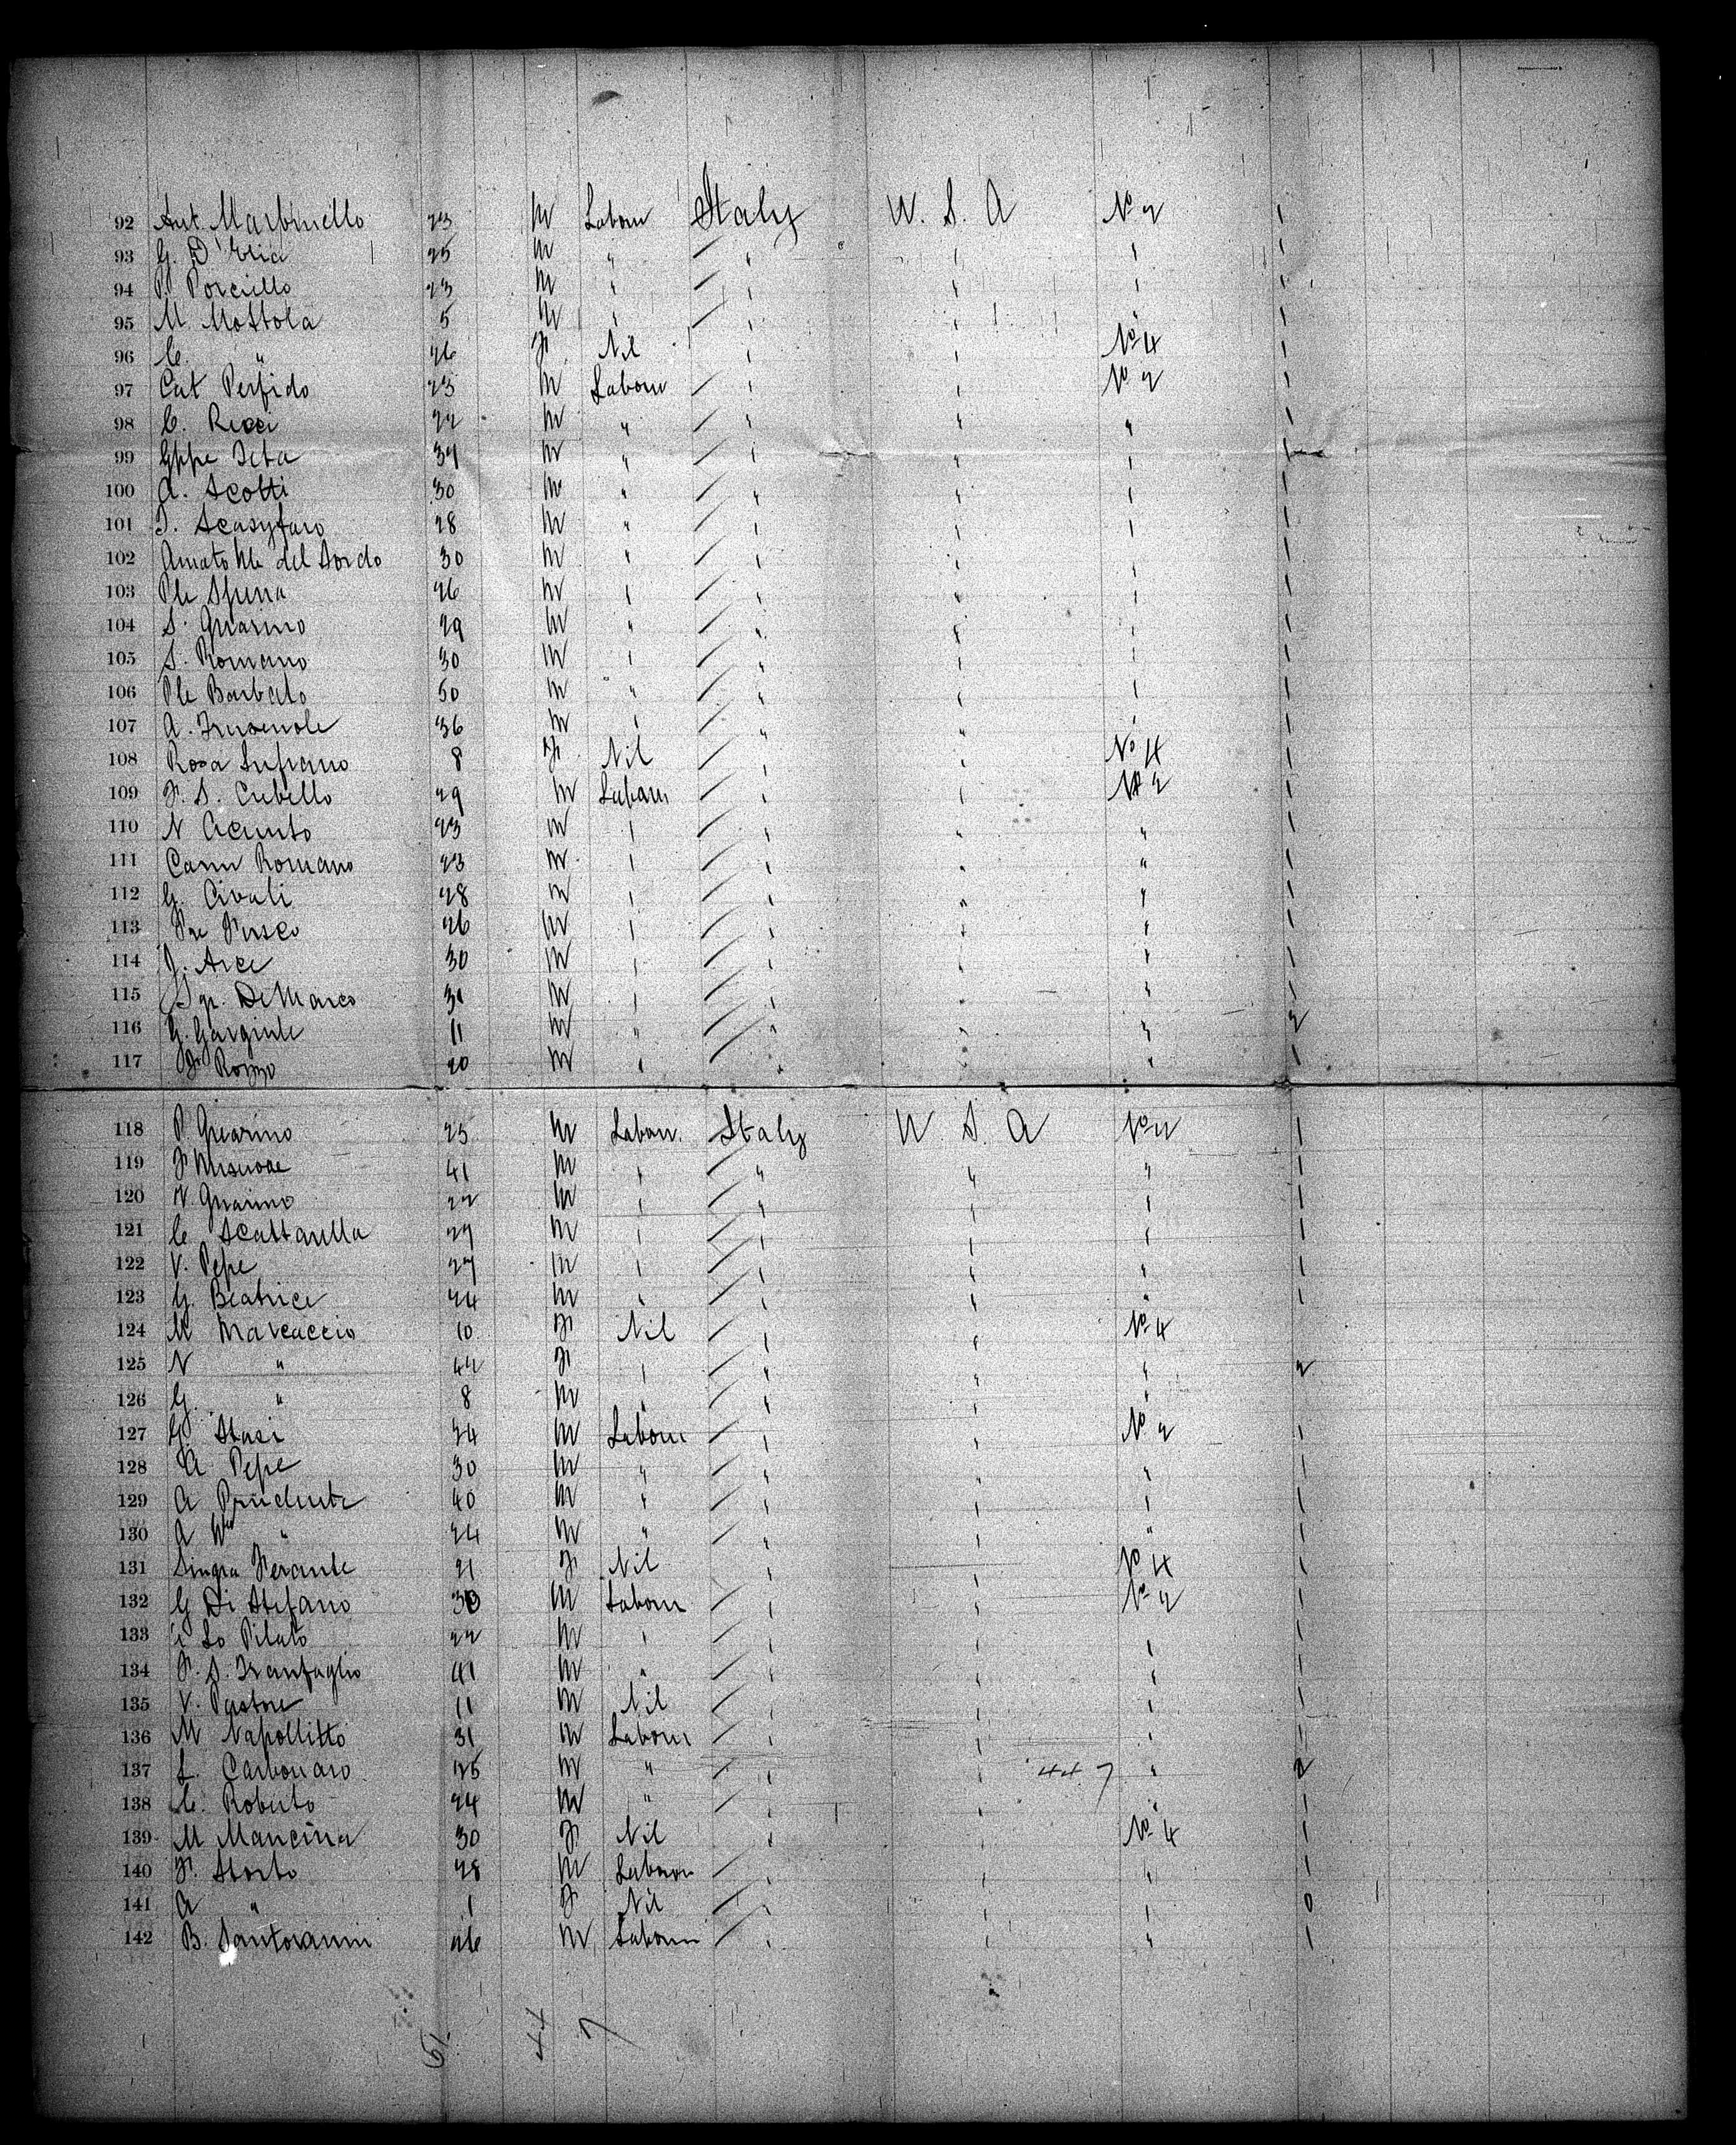 92 Ant. Martiniello 23 M Labour Italy U. S. A No 2 1
93 G. D'Elia 25 M " " " " 1
94 P. Porciello 23 M " " " " 1
95 M Mottola 5 M " " " " 1
96 C. " 26 F Nil " " No 4 1
97 Cat Perfido 23 M Labour " " No 2 1
98 C. Ricci 22 M " " " " 1
99 Gppe 34 M " " " " 1
100 A. Scotti 30 M " " " " 1
101 28 M " " " " 1
102 Amato del Sordo 30 M " " " " 1
103 Ple Spina 26 M " " " " 1
104 S. Guarino 29 M " " " " 1
105 S. Romano 30 M " " " " 1
106 Ple Barbato 50 M " " " " 1
107 A. 36 M " " " " 1
108 Rosa 8 F Nil " " No 4 1
109 F. S. Cubello 29 M Labour " " No 2 1
110 N Acunto 23 M " " " " 1
111 Carm Romano 23 M " " " " 1
112 G. Civali 28 M " " " " 1
113 26 M " " " " 1
114 Arce 30 M " " " " 1
115 De Marco 31 M " " " " 1
116 G. Gargiule 11 M " " " " 2
117 Rozzo 20 M " " " " 1
118 P. Guarino 25 M Labour Italy U. S. A No 2 1
119 F 41 M " " " " 1
120 V. Guarino 22 M " " " " 1
121 C Scattarella 27 M " " " " 1
122 V. Pepe 27 M " " " " 1
123 G. Beatrice 24 M " " " " 1
124 M Marcaccio 10 F Nil " " No 4
125 N " 42 F " " " " 2
126 G. " 8 M " " " "
127 G Stasi 24 M Labour " " No 2 1
128 A Pepe 30 M " " " " 1
129 A Prudente 40 M " " " " 1
130 A " 24 M " " " " 1
131 21 F Nil " " No 4 1
132 G Di Stefano 30 M Labour " " No 2 1
133 Lo Pilato 22 M " " " " 1
134 F. S. Tranfaglio 41 M " " " " 1
135 V. Pastore 11 M Nil " " " 1
136 M Napollitto 31 M Labour " " " 1
137 L. Carbonaro 25 M " " " 44 7 " 2
138 C. Roberto 24 M " " " " 1
139 M Mancina 30 F Nil " " No 4 1
140 F. Storto 28 M Labour " " " 1
141 A " 1 F Nil " " " 0
142 B. Santovanni 26 M Labour " " " 1
51 44 7